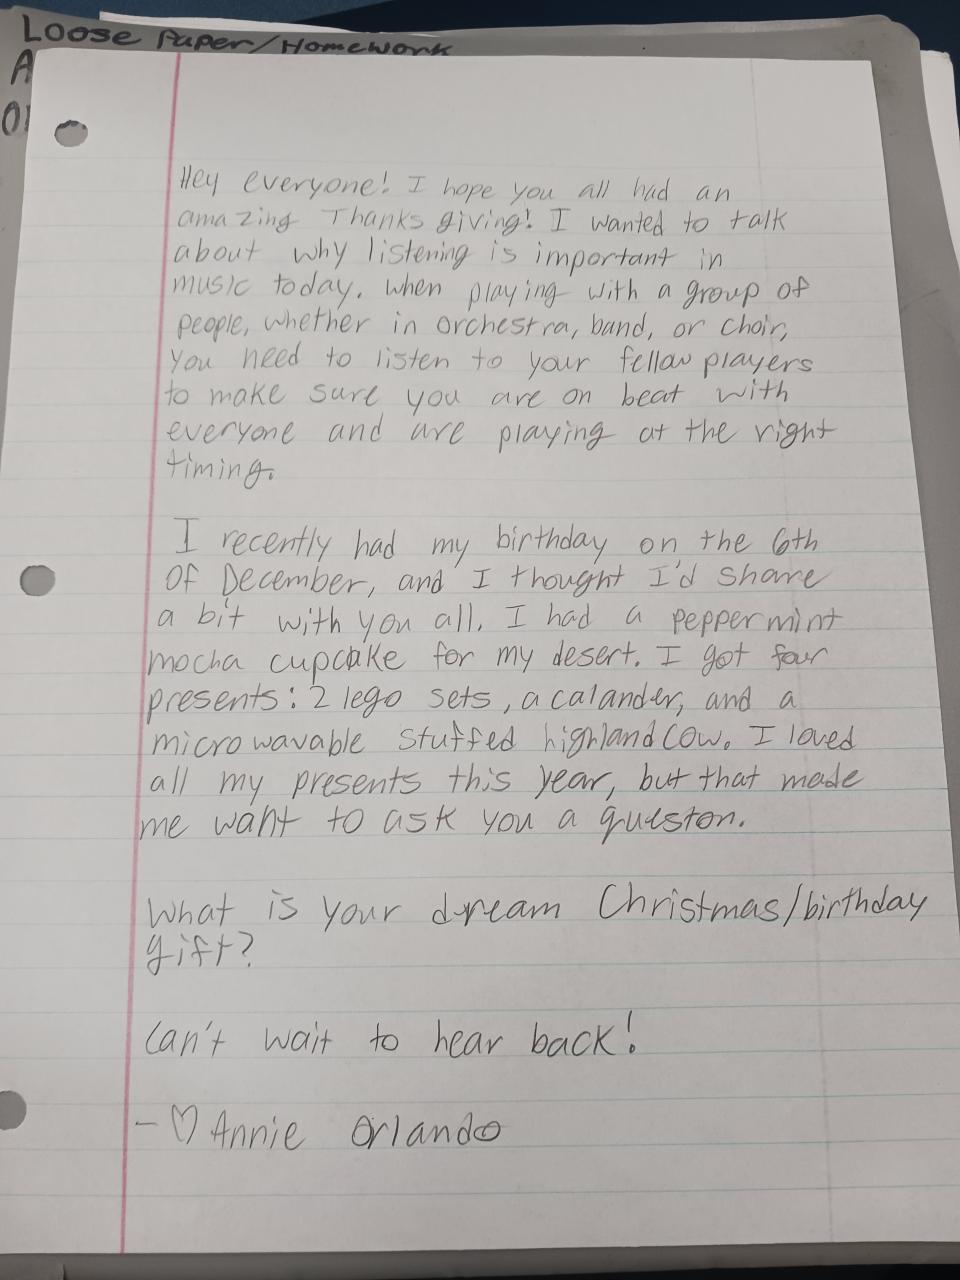 Loose Paper/Homework
A
Or
Hey everyone! I hope you all had an
amazing Thanksgiving! I wanted to talk
about why listening is important in
music today. When playing with a group of
people, whether in orchestra, band, or choir,
you need to listen to your fellow players
to make sure you are on beat with
everyone and are playing at the right
timing.
I recently had my birthday on the 6th
of December, and I thought I'd share
a bit with you all. I had a peppermint
mocha cupcake for my desert. I got four
presents: 2 lego sets, a calander, and a
microwavable stuffed highland cow. I loved
all my presents this year, but that made
me want to ask you a queston.
What is your dream Christmas/birthday
gift?
Can't wait to hear back!
- ♡ Annie Orlando